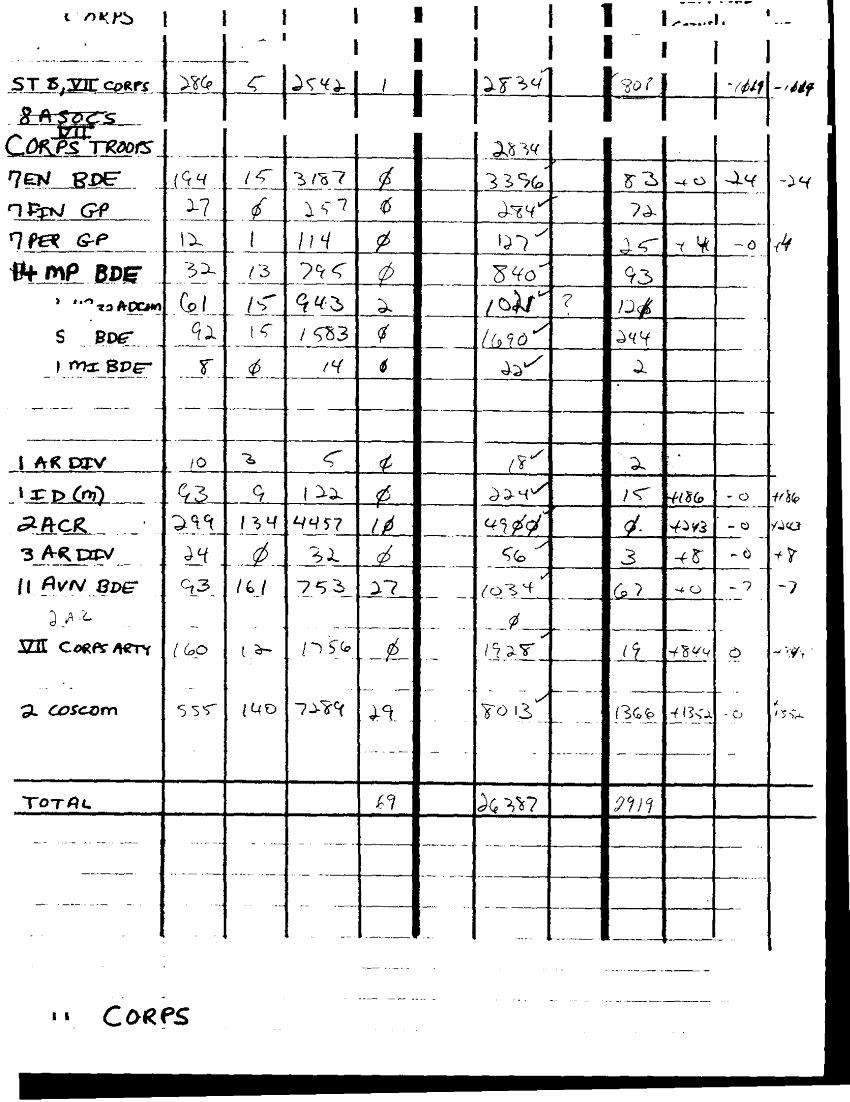 CORPS
ST B, VII CORPS 286 5 2542 1 2834✓ 807
8 ASOCS
VII
CORPS TROOPS 2834
7 EN BDE 194 15 3187 Ø 3396✓ 83 +0 -24 -24
7 FIN GP 27 Ø 257 Ø 284✓ 72
7 PER GP 12 1 114 Ø 127✓ 25 +4 -0 +4
14 MP BDE 32 13 795 Ø 840✓ 93
ADCOM 61 15 943 2 1021✓ ? 12Ø
BDE 92 15 1583 Ø 1690✓ 244
1 MI BDE 8 Ø 14 Ø 22✓ 2
1 AR DIV 10 3 5 Ø 18✓ 2
1 ID (M) 93 9 122 Ø 224✓ 15 +186 -0 +186
2 ACR 299 134 4457 1Ø 49ØØ✓ Ø +243 -0 +243
3 AR DIV 24 Ø 32 Ø 56✓ 3 +8 -0 +8
11 AVN BDE 93 161 753 27 1034✓ 67 +0 -7 -7
Ø
VII CORPS ARTY 160 12 1756 Ø 1928✓ 19 +844 0
2 COSCOM 555 140 7289 29 8013✓ 1366 +1352 -0 +1352
TOTAL 69 26387 2919
CORPS